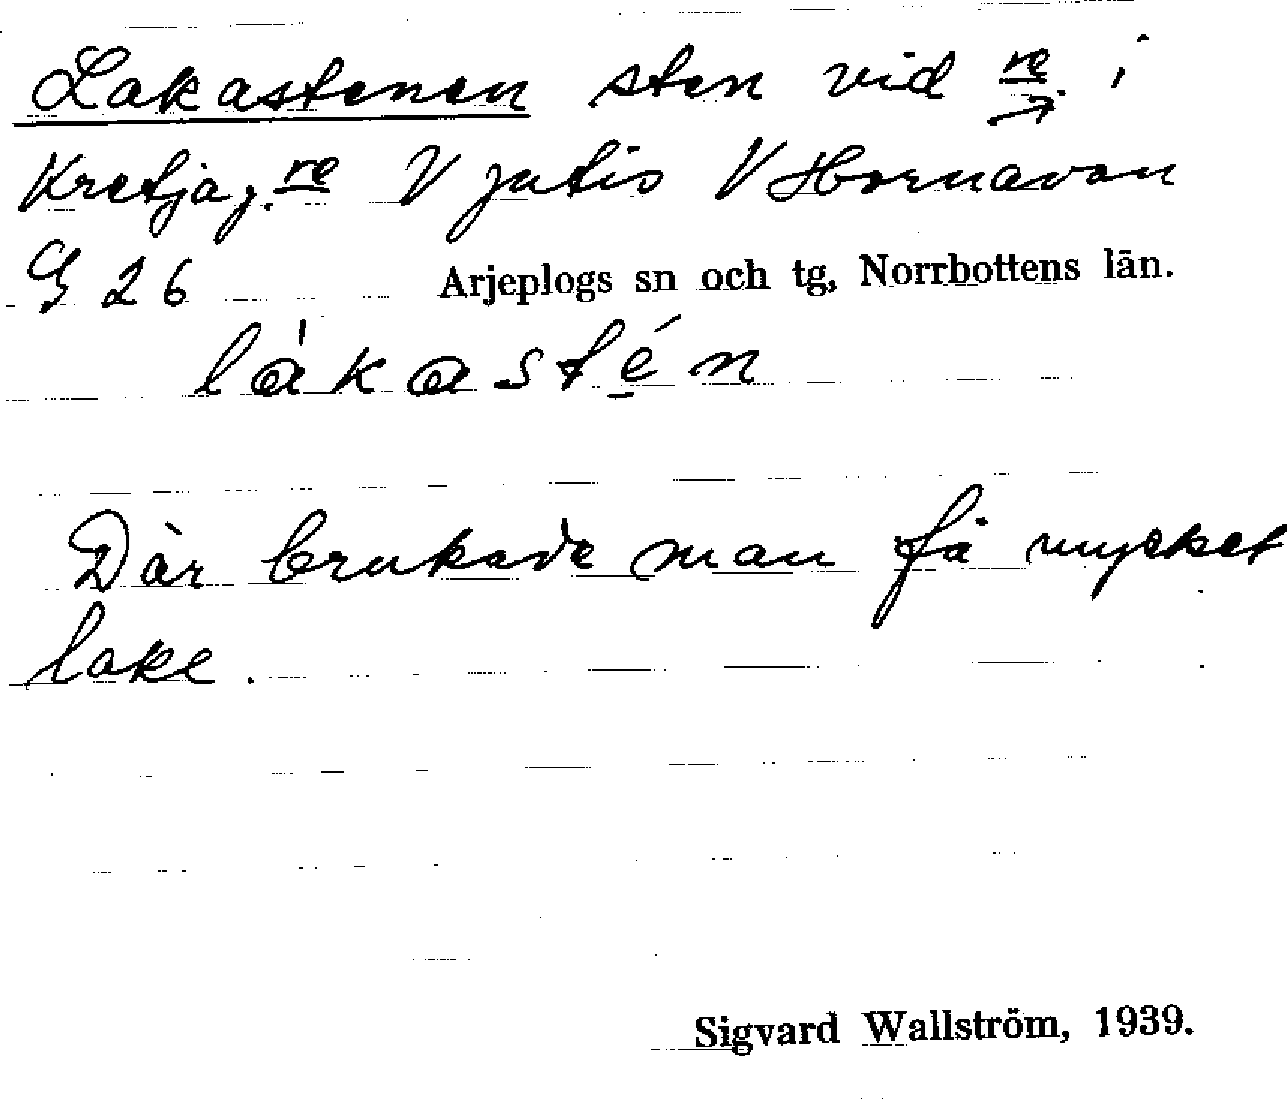 Lakastenen sten vid re i
Kretjaj.re V Jutis V Hornavan
G 26 Arjeplogs sn och tg, Norrbottens län.
làkastén
Där brukade man få mycket
lake.
Sigvard Wallström, 1939.